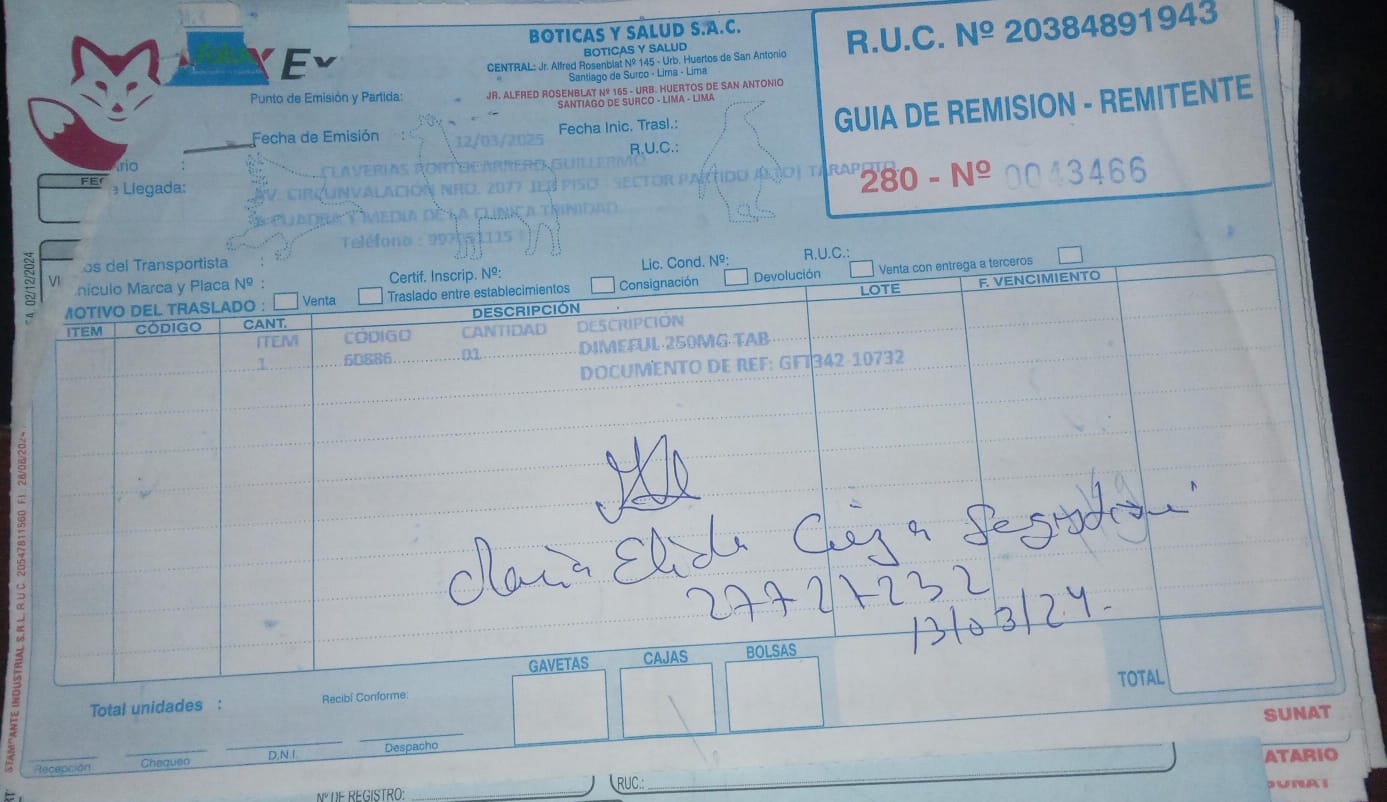 Ex
BOTICAS Y SALUD S.A.C.
BOTICAS Y SALUD
CENTRAL: Jr. Alfred Rosenblat Nº 145 - Urb. Huertos de San Antonio
Santiago de Surco - Lima - Lima
JR. ALFRED ROSENBLAT Nº 165 - URB. HUERTOS DE SAN ANTONIO
SANTIAGO DE SURCO - LIMA - LIMA
R.U.C. Nº 20384891943
GUIA DE REMISION - REMITENTE
280 - Nº 0043466
Punto de Emisión y Partida:
Fecha de Emisión : 12/03/2025 Fecha Inic. Trasl.:
R.U.C.:
rio : CLAVERIAS PORTOCARRERO GUILLERMO
FEC
e Llegada: AV. CIRCUNVALACIÓN NRO. 2077 1ER PISO - SECTOR PARTIDO ALTO| TARAPOTO
A CUADRA Y MEDIA DE LA CLINICA TRINIDAD
Teléfono : 997051115
os del Transportista :
VI
hículo Marca y Placa Nº : Certif. Inscrip. Nº: Lic. Cond. Nº: R.U.C.:
MOTIVO DEL TRASLADO : Venta Traslado entre establecimientos Consignación Devolución Venta con entrega a terceros
ITEM CÓDIGO CANT. DESCRIPCIÓN LOTE F. VENCIMIENTO
ITEM CÓDIGO CANTIDAD DESCRIPCIÓN
1 60886 01 DIMEFUL 250MG TAB
DOCUMENTO DE REF: GFT342-10732
Maria Elida
27727232
13/03/24.
GAVETAS CAJAS BOLSAS
TOTAL
Total unidades : Recibí Conforme:
Recepción Chequeo D.N.I. Despacho
SUNAT
ATARIO
SUNAT
Nº DE REGISTRO: RUC.:
02/12/2024
INDUSTRIAL S.R.L. R.U.C. 20547811560 F.I. 28/08/202